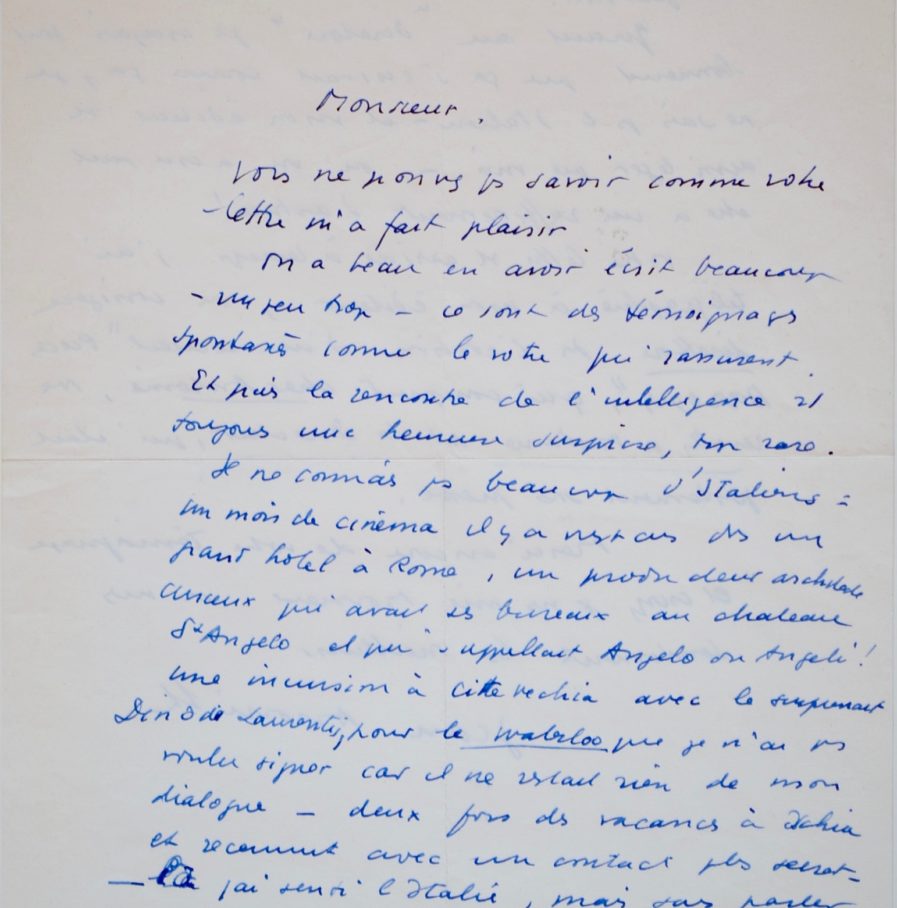 Monsieur,
Vous ne pouvez ps savoir comme votre
lettre m'a fait plaisir
On a beau en avoir écrit beaucoup
- un peu trop - ce sont des témoignages
spontanés comme le votre qui rassurent.
Et puis la rencontre de l'intelligence est
toujours une heureuse surprise, trop rare.
Je ne connais ps beaucoup d'Italiens =
un mois de cinéma il y a ds un
grand hotel à Rome, un producteur
curieux qui avait ses bureaux au chateau
St Angelo et qui s'appellait Angelo ou Angeli!
une incursion à citta vechia avec le surprenant
Dino de Laurentis, pour le Waterloo que je n'ai ps
voulu signer car il ne restait rien de mon
dialogue - deux fois des vacances à Ischia
et récemment avec un contact pls secret -
j'ai senti l'Italie, mais sans parler